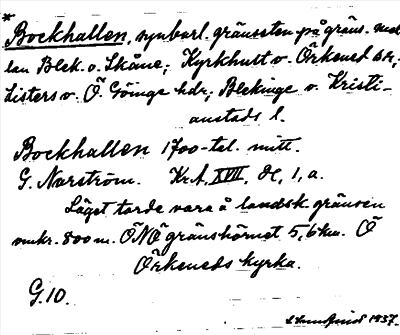 *
Bockhallen, synbarl. gränssten på gräns. mel
lan Blek. o. Skåne; Kyrkhult o. Örkened skr;
Listers o. Ö. Göinge hdr; Blekinge o. Kristi-
anstads l.
Bockhallen 1700-tal. mitt.
G. Norström. Kr.A, XVII, 1, a.
Läget torde vara å landsk. gränsen
omkr. 800 m. ÖNÖ gränshörnet 5,6 km. Ö
Örkeneds kyrka.
G.10.
1937.